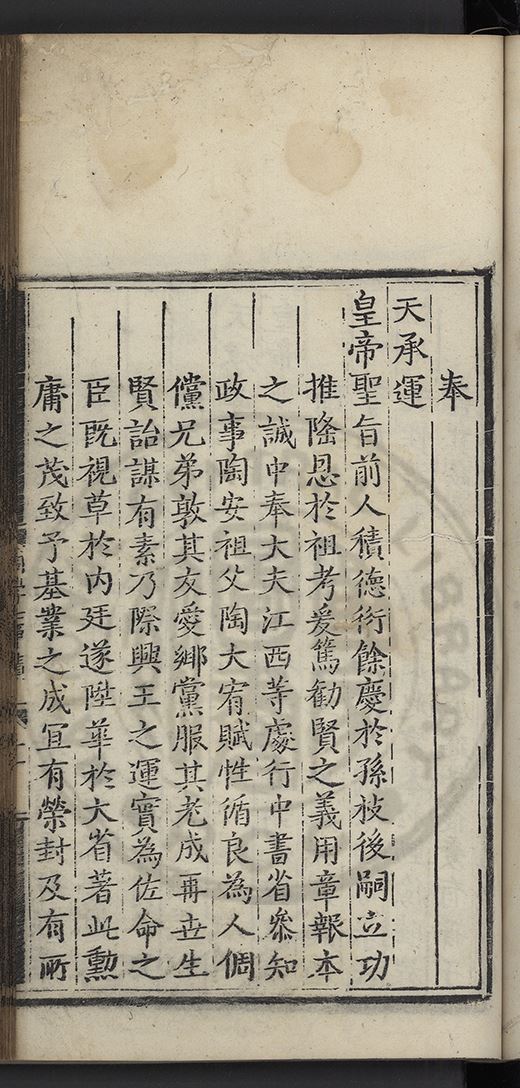 奉
天承運
皇帝聖旨前人積德衍餘慶於孫枝後嗣立功
推隆恩於祖考爰篤勸賢之義用章報本
之誠中奉大夫江西等處行中書省叅知
政事陶安祖父陶大宥賦性循良為人倜
儻兄弟敦其友愛鄉黨服其老成再世生
賢詒謀有素乃際興王之運實為佐命之
臣既視草於内廷遂陞華於大省著此勲
庸之茂致予基業之成宜有榮封及有所